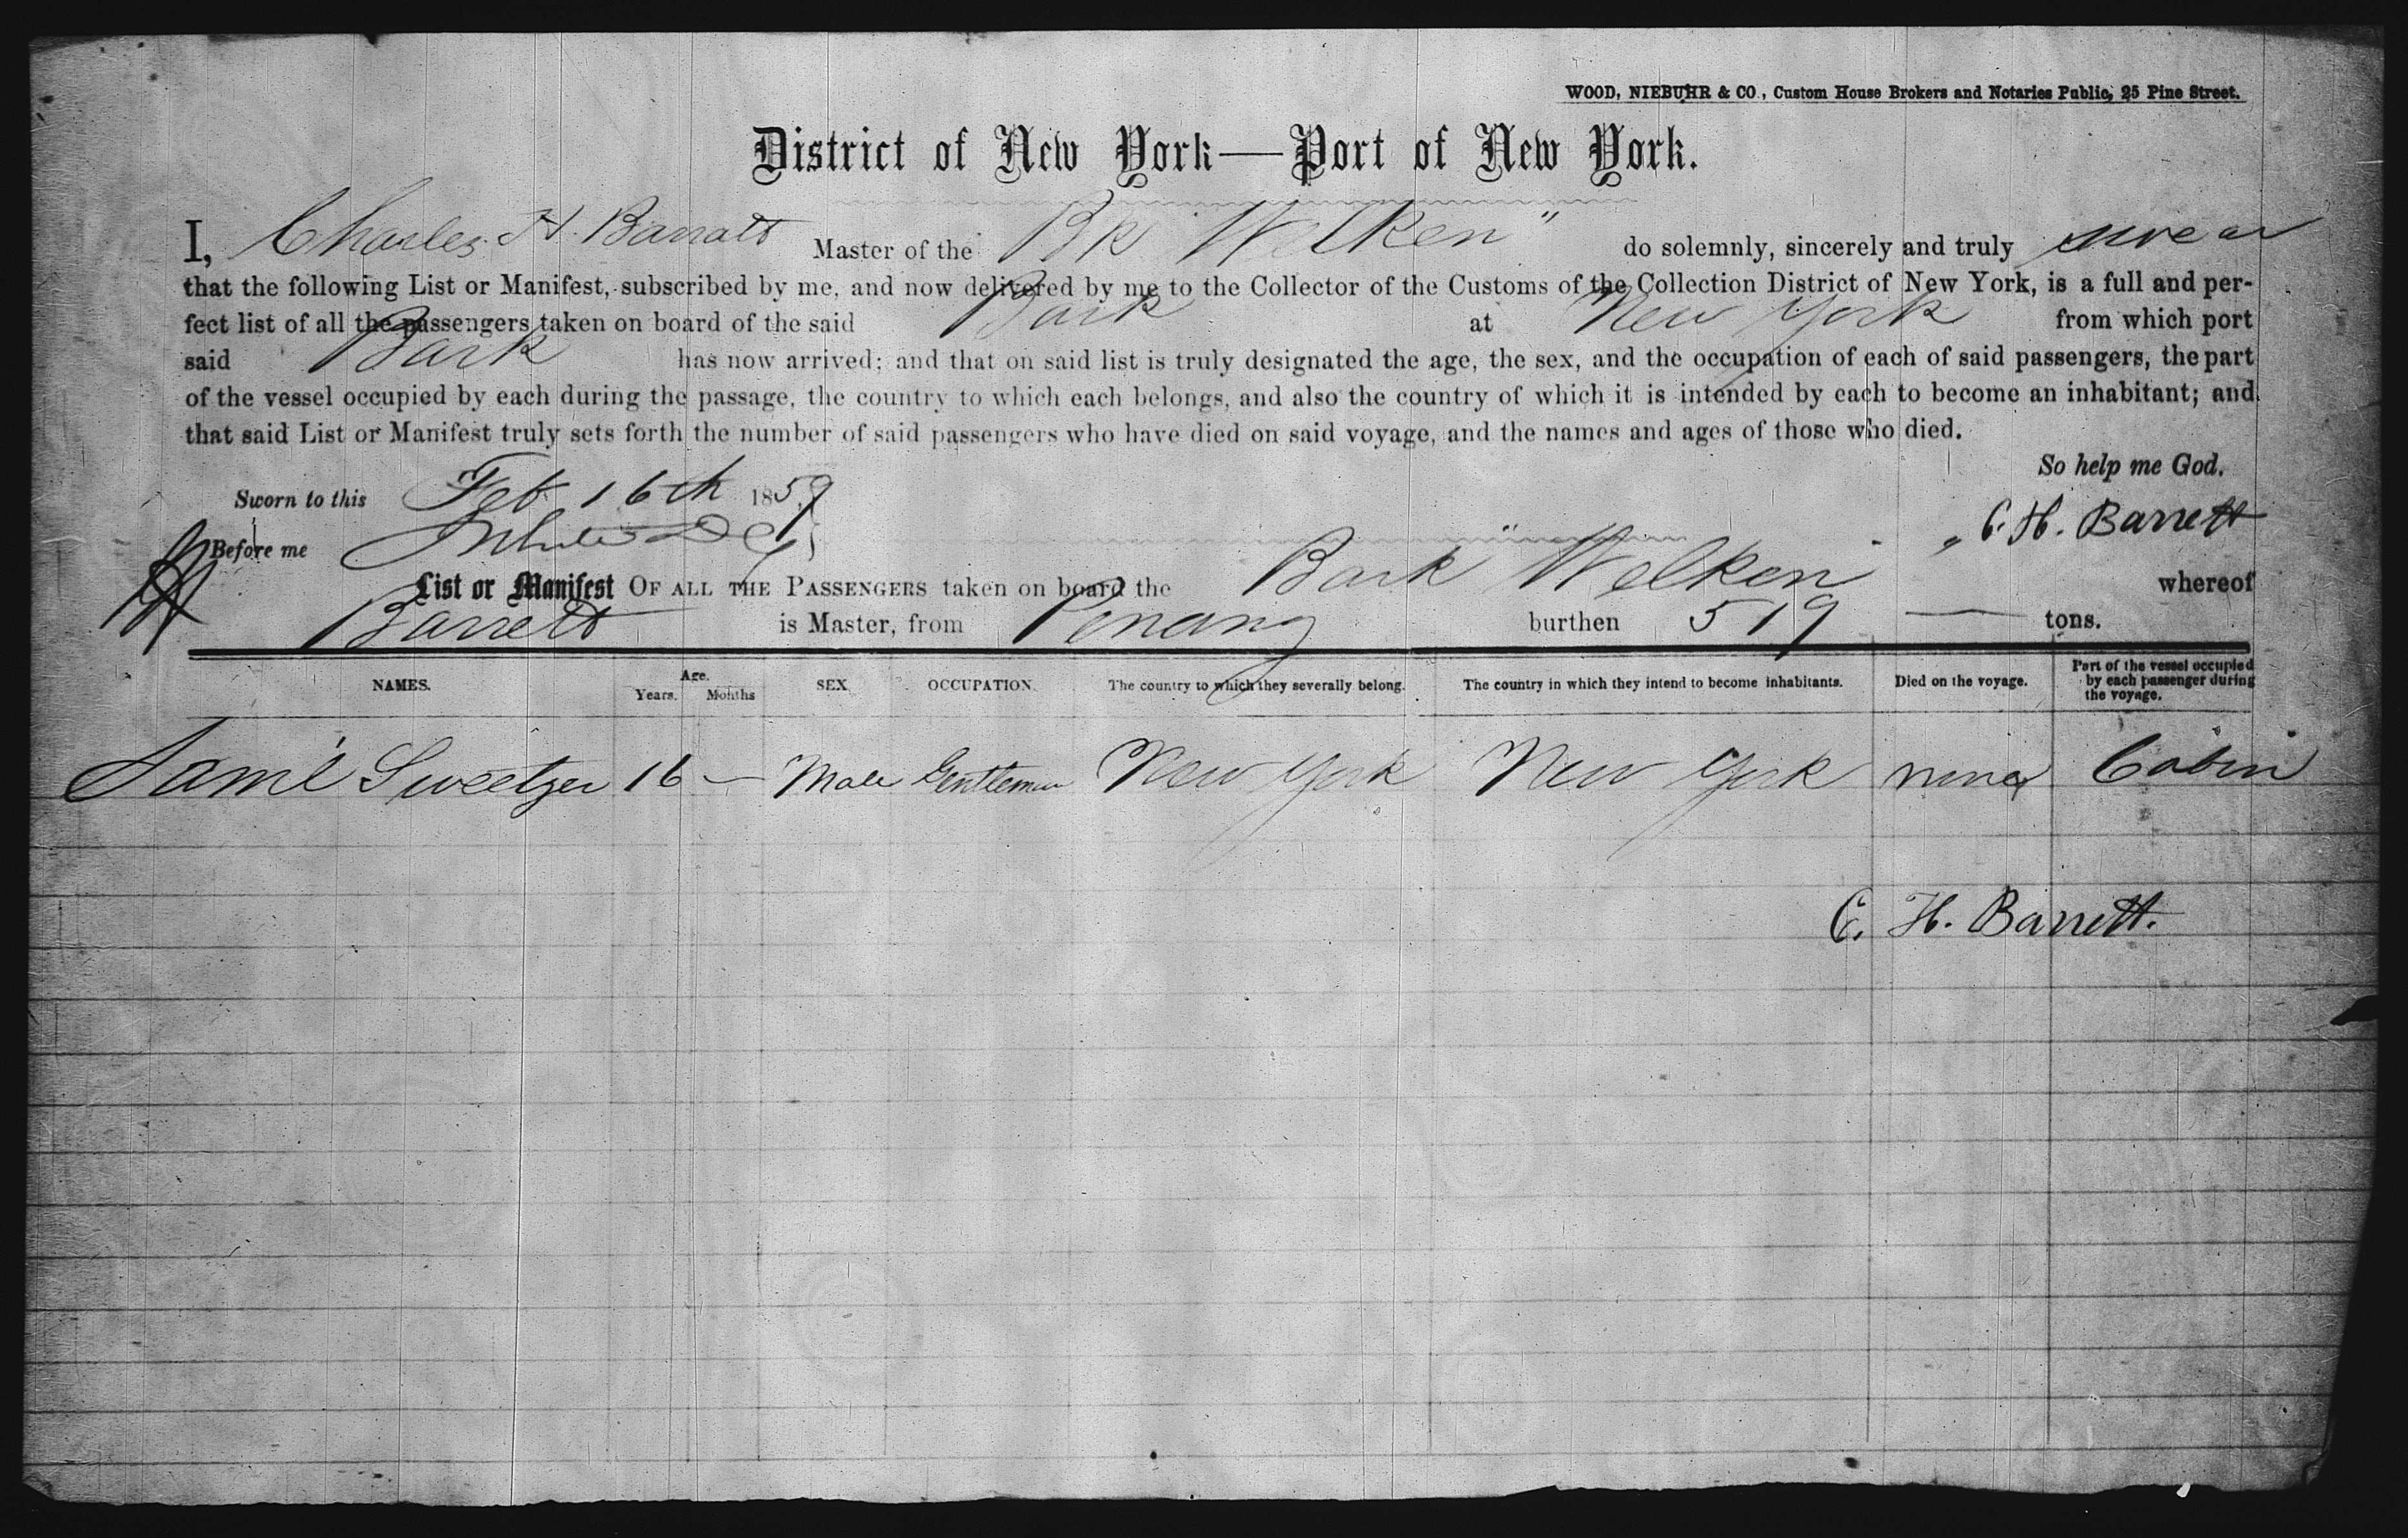 WOOD, NIEBUHR & CO., Custom House Brokers and Notaries Public, 25 Pine Street.
District of New York—Port of New York.
I, Charles H. Barratt Master of the Bk "Welken" do solemnly, sincerely and truly swear
that the following List or Manifest, subscribed by me, and now delivered by me to the Collector of the Customs of the Collection District of New York, is a full and per-
fect list of all the passengers taken on board of the said Bark at New York from which port
said Bark has now arrived; and that on said list is truly designated the age, the sex, and the occupation of each of said passengers, the part
of the vessel occupied by each during the passage, the country to which each belongs, and also the country of which it is intended by each to become an inhabitant; and
that said List or Manifest truly sets forth the number of said passengers who have died on said voyage, and the names and ages of those who died.
So help me God.
Sworn to this Feb 16th 1859
C. H. Barrett
Before me
List or Manifest OF ALL THE PASSENGERS taken on board the Bark "Welken" whereof
Barrett is Master, from Penang burthen 519 — tons.
NAMES. Age. Years. Months SEX. OCCUPATION. The country to which they severally belong. The country in which they intend to become inhabitants. Died on the voyage. Part of the vessel occupied by each passenger during the voyage.
Saml Sweetzer 16 — Male Gentleman New York New York none Cabin
C. H. Barrett.